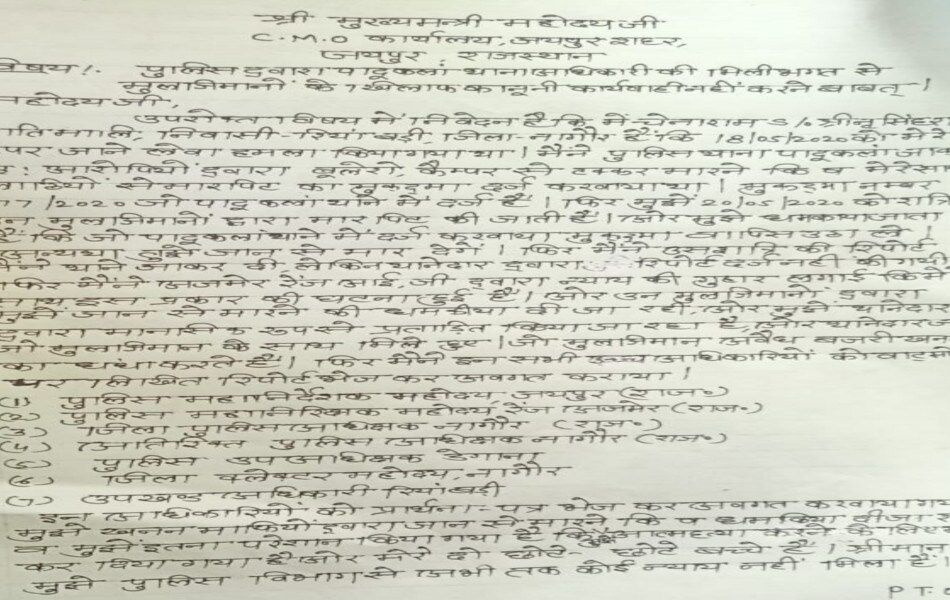 श्री मुख्यमन्त्री महोदय जी
C.M.O कार्यालय, जयपुर शहर,
जयपुर, राजस्थान
विषय:- पुलिस द्वारा पादूकलां थानाआधिकारी की मिलीभगत से
मुलाजिमानों के खिलाफ कानूनी कार्यवाही नहीं करने बाबत्।
महोदय जी,
उपरोक्त विषय में निवेदन है कि में चेनाराम S/o श्रीनृसिंहर
जाति माली, निवासी - रियां बड़ी, जिला - नागौर है कि 18/05/2020 को मेरे
पर जाने लेवा हमला किया गया था। मैंने पुलिस थाना पादूकलां जाक
आरोपियों द्वारा बुलेरो, कैम्पर से टक्कर मारने कि व मेरे
साथियों से मारपिट का मुकदमा दर्ज करवाया था। मुकदमा नम्बर
77/2020 जो पादूकलां थाने में दर्ज है। फिर मुझे 20/05/2020 को रात्रि
इन मुलाजिमानों द्वारा मारपिट की जाती है। और मुझे धमकाया जाता
है कि जो पादूकलां थाने में दर्ज करवाया मुकदमा वापिस उठा लें।
अन्यथा तुझे जान से मार देगें। फिर मैंने उस रात्रि की रिपोर्ट
मैंने थाने जाकर दी लेकिन थानेदार द्वारा रिपोर्ट दर्ज नहीं की गयी।
फिर मैंने अजमेर रेंज आई.जी द्वारा न्याय की गुहार लगाई कि मेरे
साथ इस प्रकार की घटना हुई है। और उन मुलाजिमानों द्वारा
मुझे जान से मारने की धमकीया दी जा रही, और मुझे थानेदार
द्वारा मानसीक रूप से प्रताड़ित किया जा रहा है, और थानेदार
जो मुलाजिमान के साथ मिले हुए। जो मुलाजिमान अवैध बजरी खनन
का धंधा करते हैं। फिर मैंने इन सभी उच्च आधिकारियों को
पर लिखित रिपोर्ट भेज कर अवगत कराया।
(1) पुलिस महानिर्देशक महोदय, जयपुर (राज॰)
(2) पुलिस महानिरिक्षक महोदय, रेंज अजमेर (राज॰)
(3) जिला पुलिस आधिक्षक नागौर (राज॰)
(4) अतिरिक्त पुलिस आधिक्षक नागौर (राज॰)
(5) पुलिस उप आधिक्षक डेगाना
(6) जिला क्लेक्टर महोदय, नागौर
(7) उपखण्ड आधिकारी रियांबड़ी
इन आधिकारियों को प्रार्थना-पत्र भेज कर अवगत करवाया गया
मुझे खनन माफियों द्वारा जान से मारने कि व धमकिया दी जा
व मुझे इतना परेशान किया गया है कि मुझे आत्महत्या करने के लिए
कर दिया गया है और मेरे दो छोटे-छोटे बच्चे हैं। श्रीमान
मुझे पुलिस विभाग से अभी तक कोई न्याय नहीं मिला है।
P T.